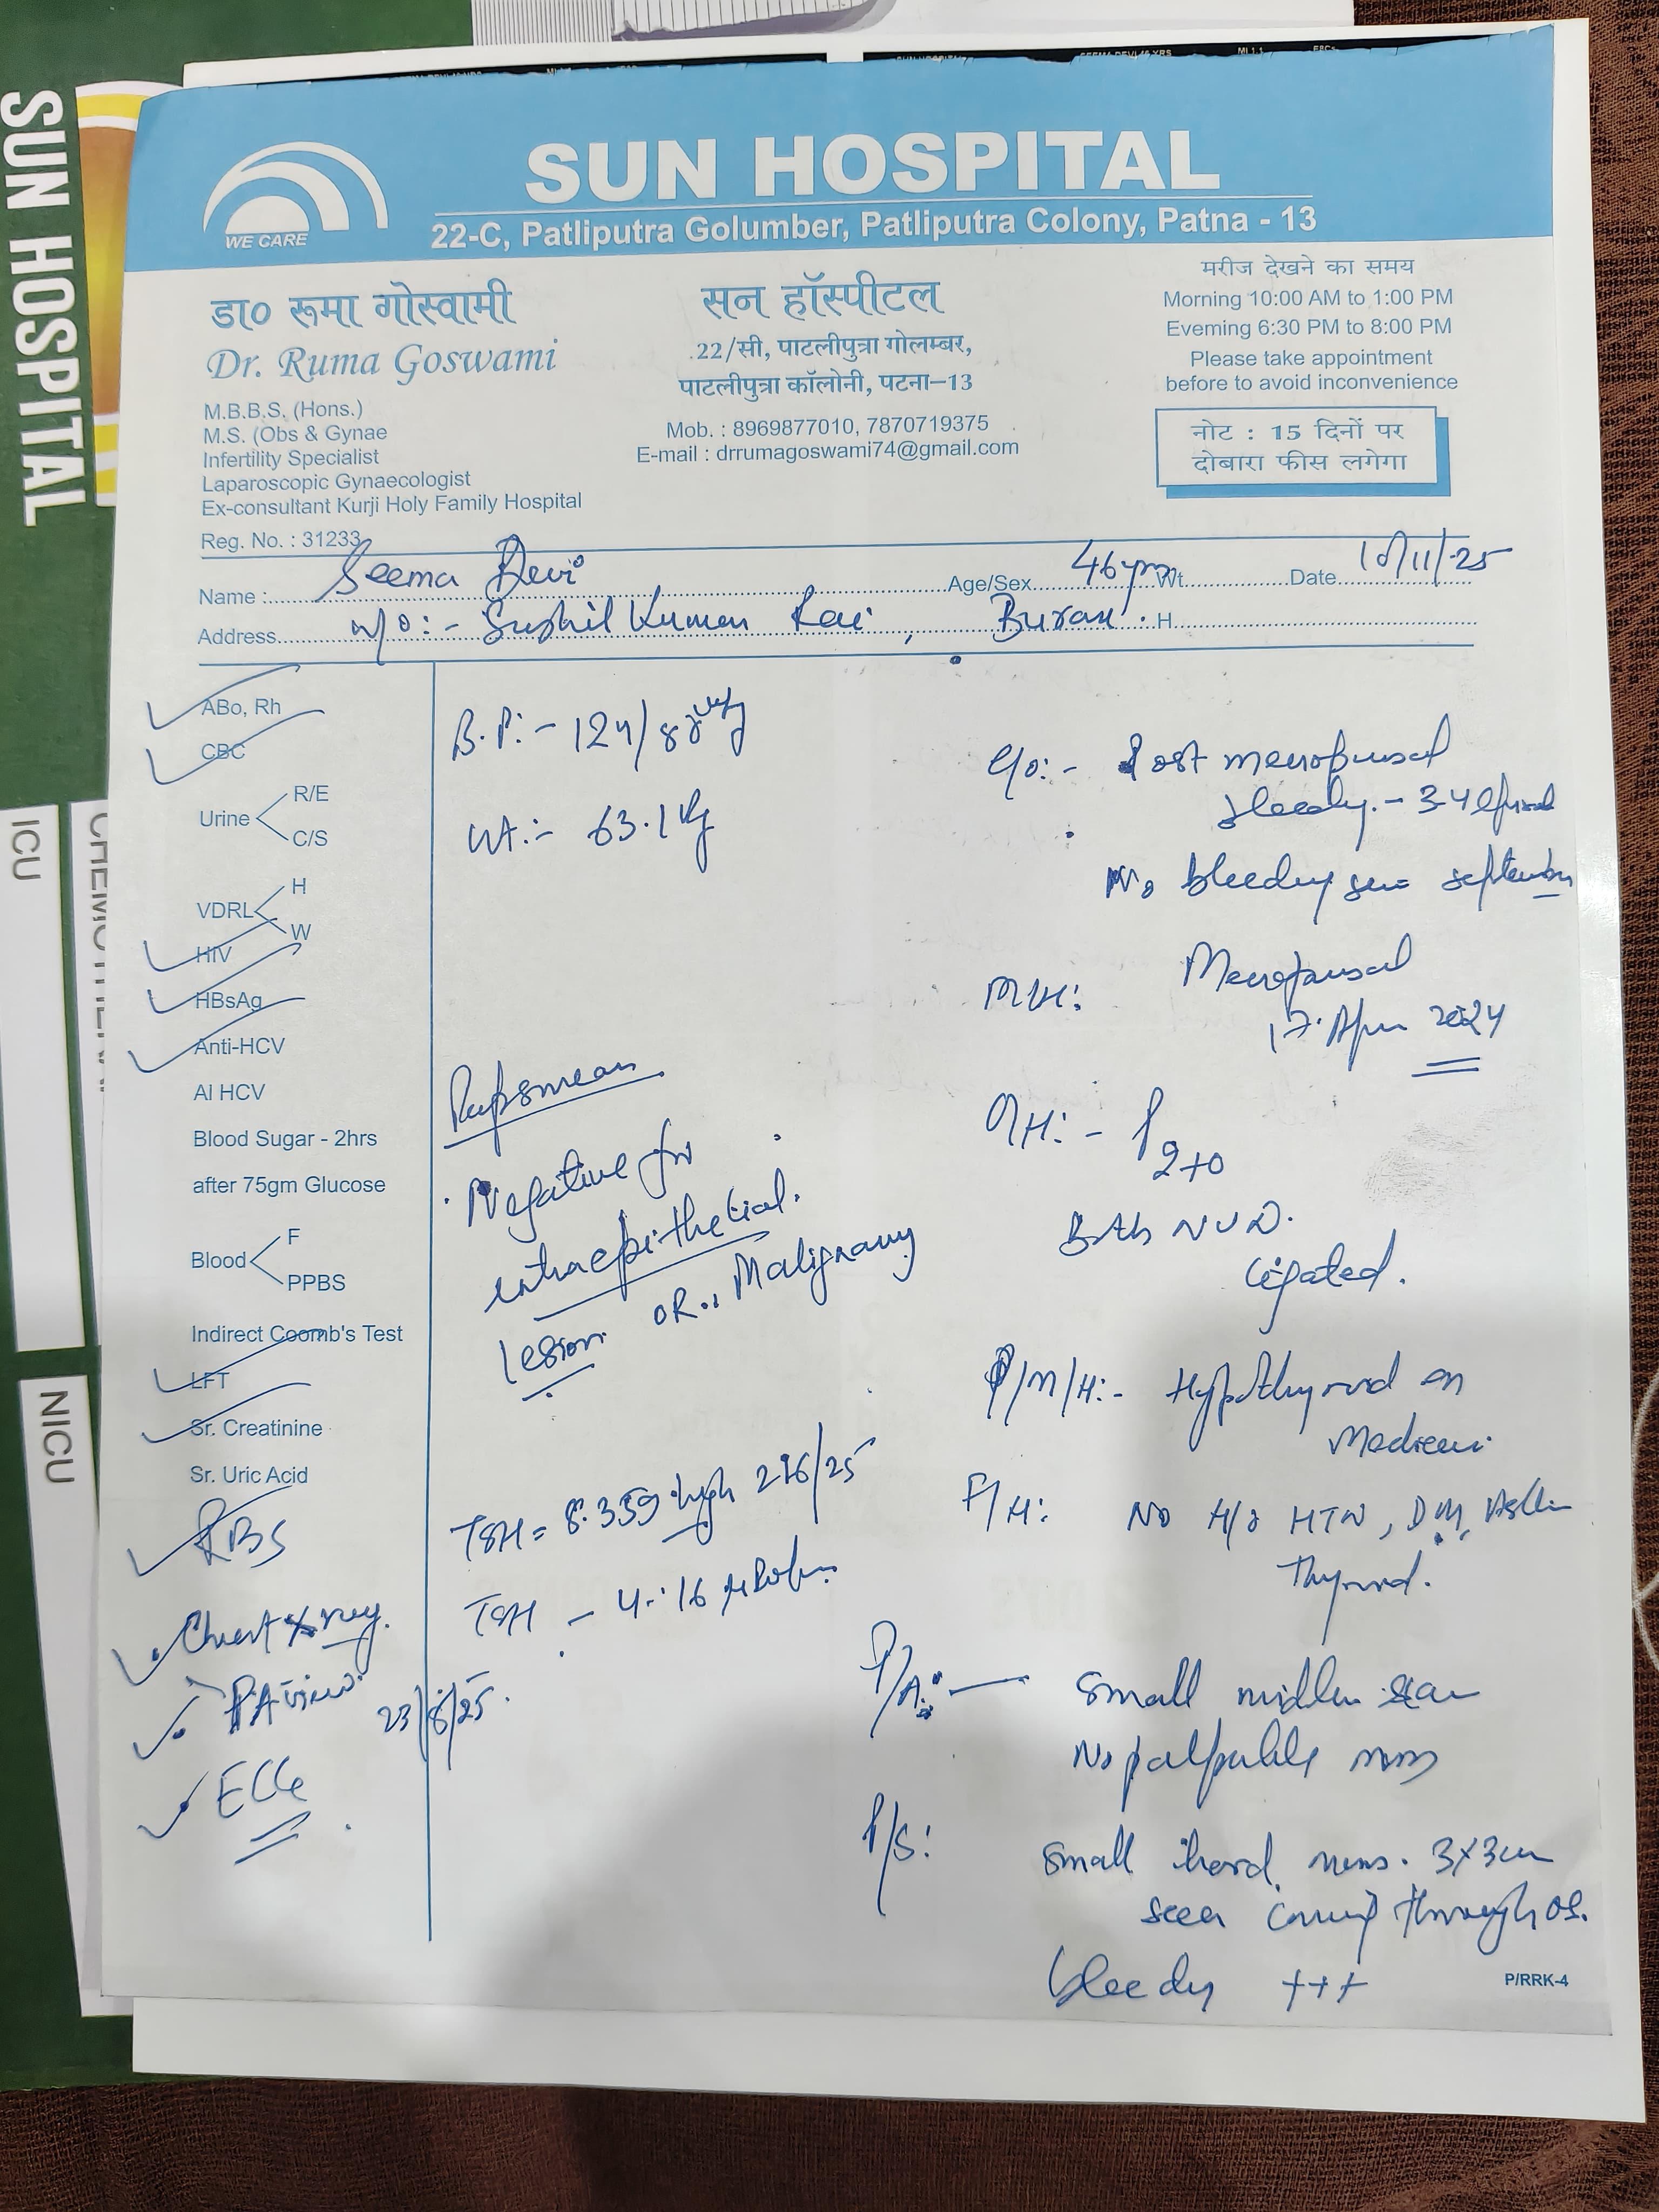 SUN HOSPITAL
ICU
NICU
SUN HOSPITAL
22-C, Patliputra Golumber, Patliputra Colony, Patna - 13
WE CARE
डा० रूमा गोस्वामी
Dr. Ruma Goswami
M.B.B.S. (Hons.)
M.S. (Obs & Gynae
Infertility Specialist
Laparoscopic Gynaecologist
Ex-consultant Kurji Holy Family Hospital
Reg. No. : 31233
सन हॉस्पीटल
22/सी, पाटलीपुत्रा गोलम्बर,
पाटलीपुत्रा कॉलोनी, पटना–13
Mob. : 8969877010, 7870719375
E-mail : drrumagoswami74@gmail.com
मरीज देखने का समय
Morning 10:00 AM to 1:00 PM
Eveming 6:30 PM to 8:00 PM
Please take appointment
before to avoid inconvenience
नोट : 15 दिनों पर
दोबारा फीस लगेगा
Name : Seema Devi Age/Sex 46 yrs Wt. Date 10/11/25
Address w/o:- Sushil Kumar Rai, H
ABo, Rh
CBC
Urine R/E
C/S
VDRL H
W
HIV
HBsAg
Anti-HCV
AI HCV
Blood Sugar - 2hrs
after 75gm Glucose
Blood F
PPBS
Indirect Coomb's Test
LFT
Sr. Creatinine
Sr. Uric Acid
RBS
Chest x ray.
PA view
ECG
B.P:- 124/
Wt:- 63.1 kg
Papsmear
Negative for
intraepithelial
lesion OR Malignancy
TSH = 8.359 high
TSH - 4.16
23/8/25.
C/o:- Post menopausal
bleeding -
No bleeding since september
M/H: Menopausal
17 April 2024
O/H:- P2+0
Both NVD.
Ligated.
P/M/H:- Hypothyroid on
Medicine
F/H: No H/o HTN, DM, Asthma
Thyroid.
P/A: — Small midline scar
No palpable mass
P/S: small mass. 3x3cm
seen coming through os.
bleeding +++
P/RRK-4